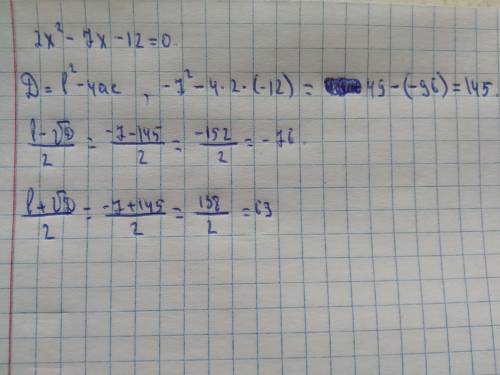 2x² - 7x - 12 = 0.
D = b² - 4ac , -7² - 4 · 2 · (-12) = 49 - (-96) = 145.
b - √D / 2 = -7 - 145 / 2 = -152 / 2 = -76.
b + √D / 2 = -7 + 145 / 2 = 138 / 2 = 69